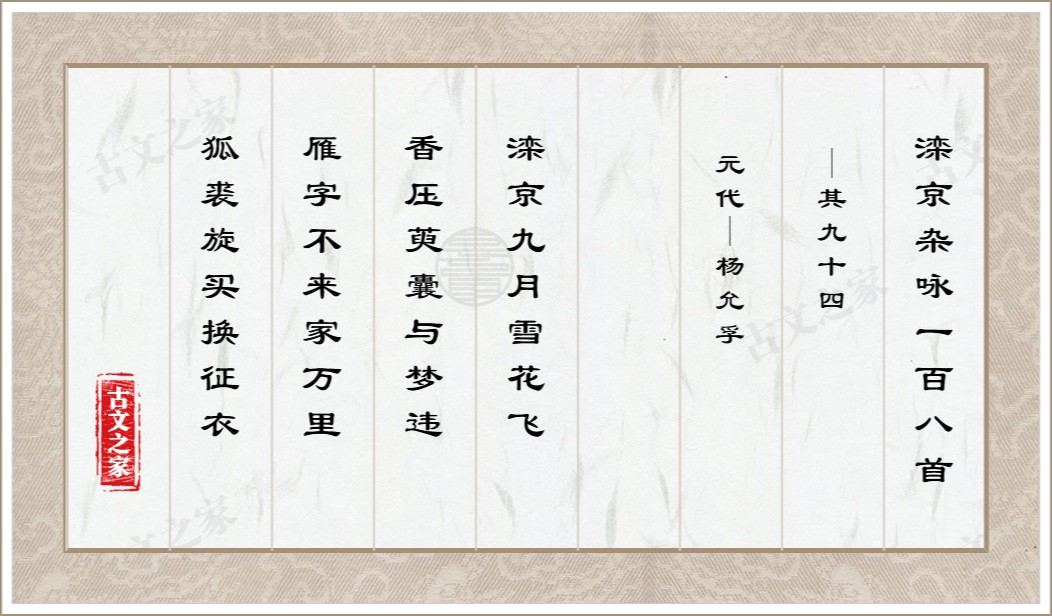 滦京杂咏一百八首
—其九十四
元代—杨允孚
滦京九月雪花飞
香压萸囊与梦违
雁字不来家万里
狐裘旋买换征衣
古文之家
古文之家
古文之家
古文之家